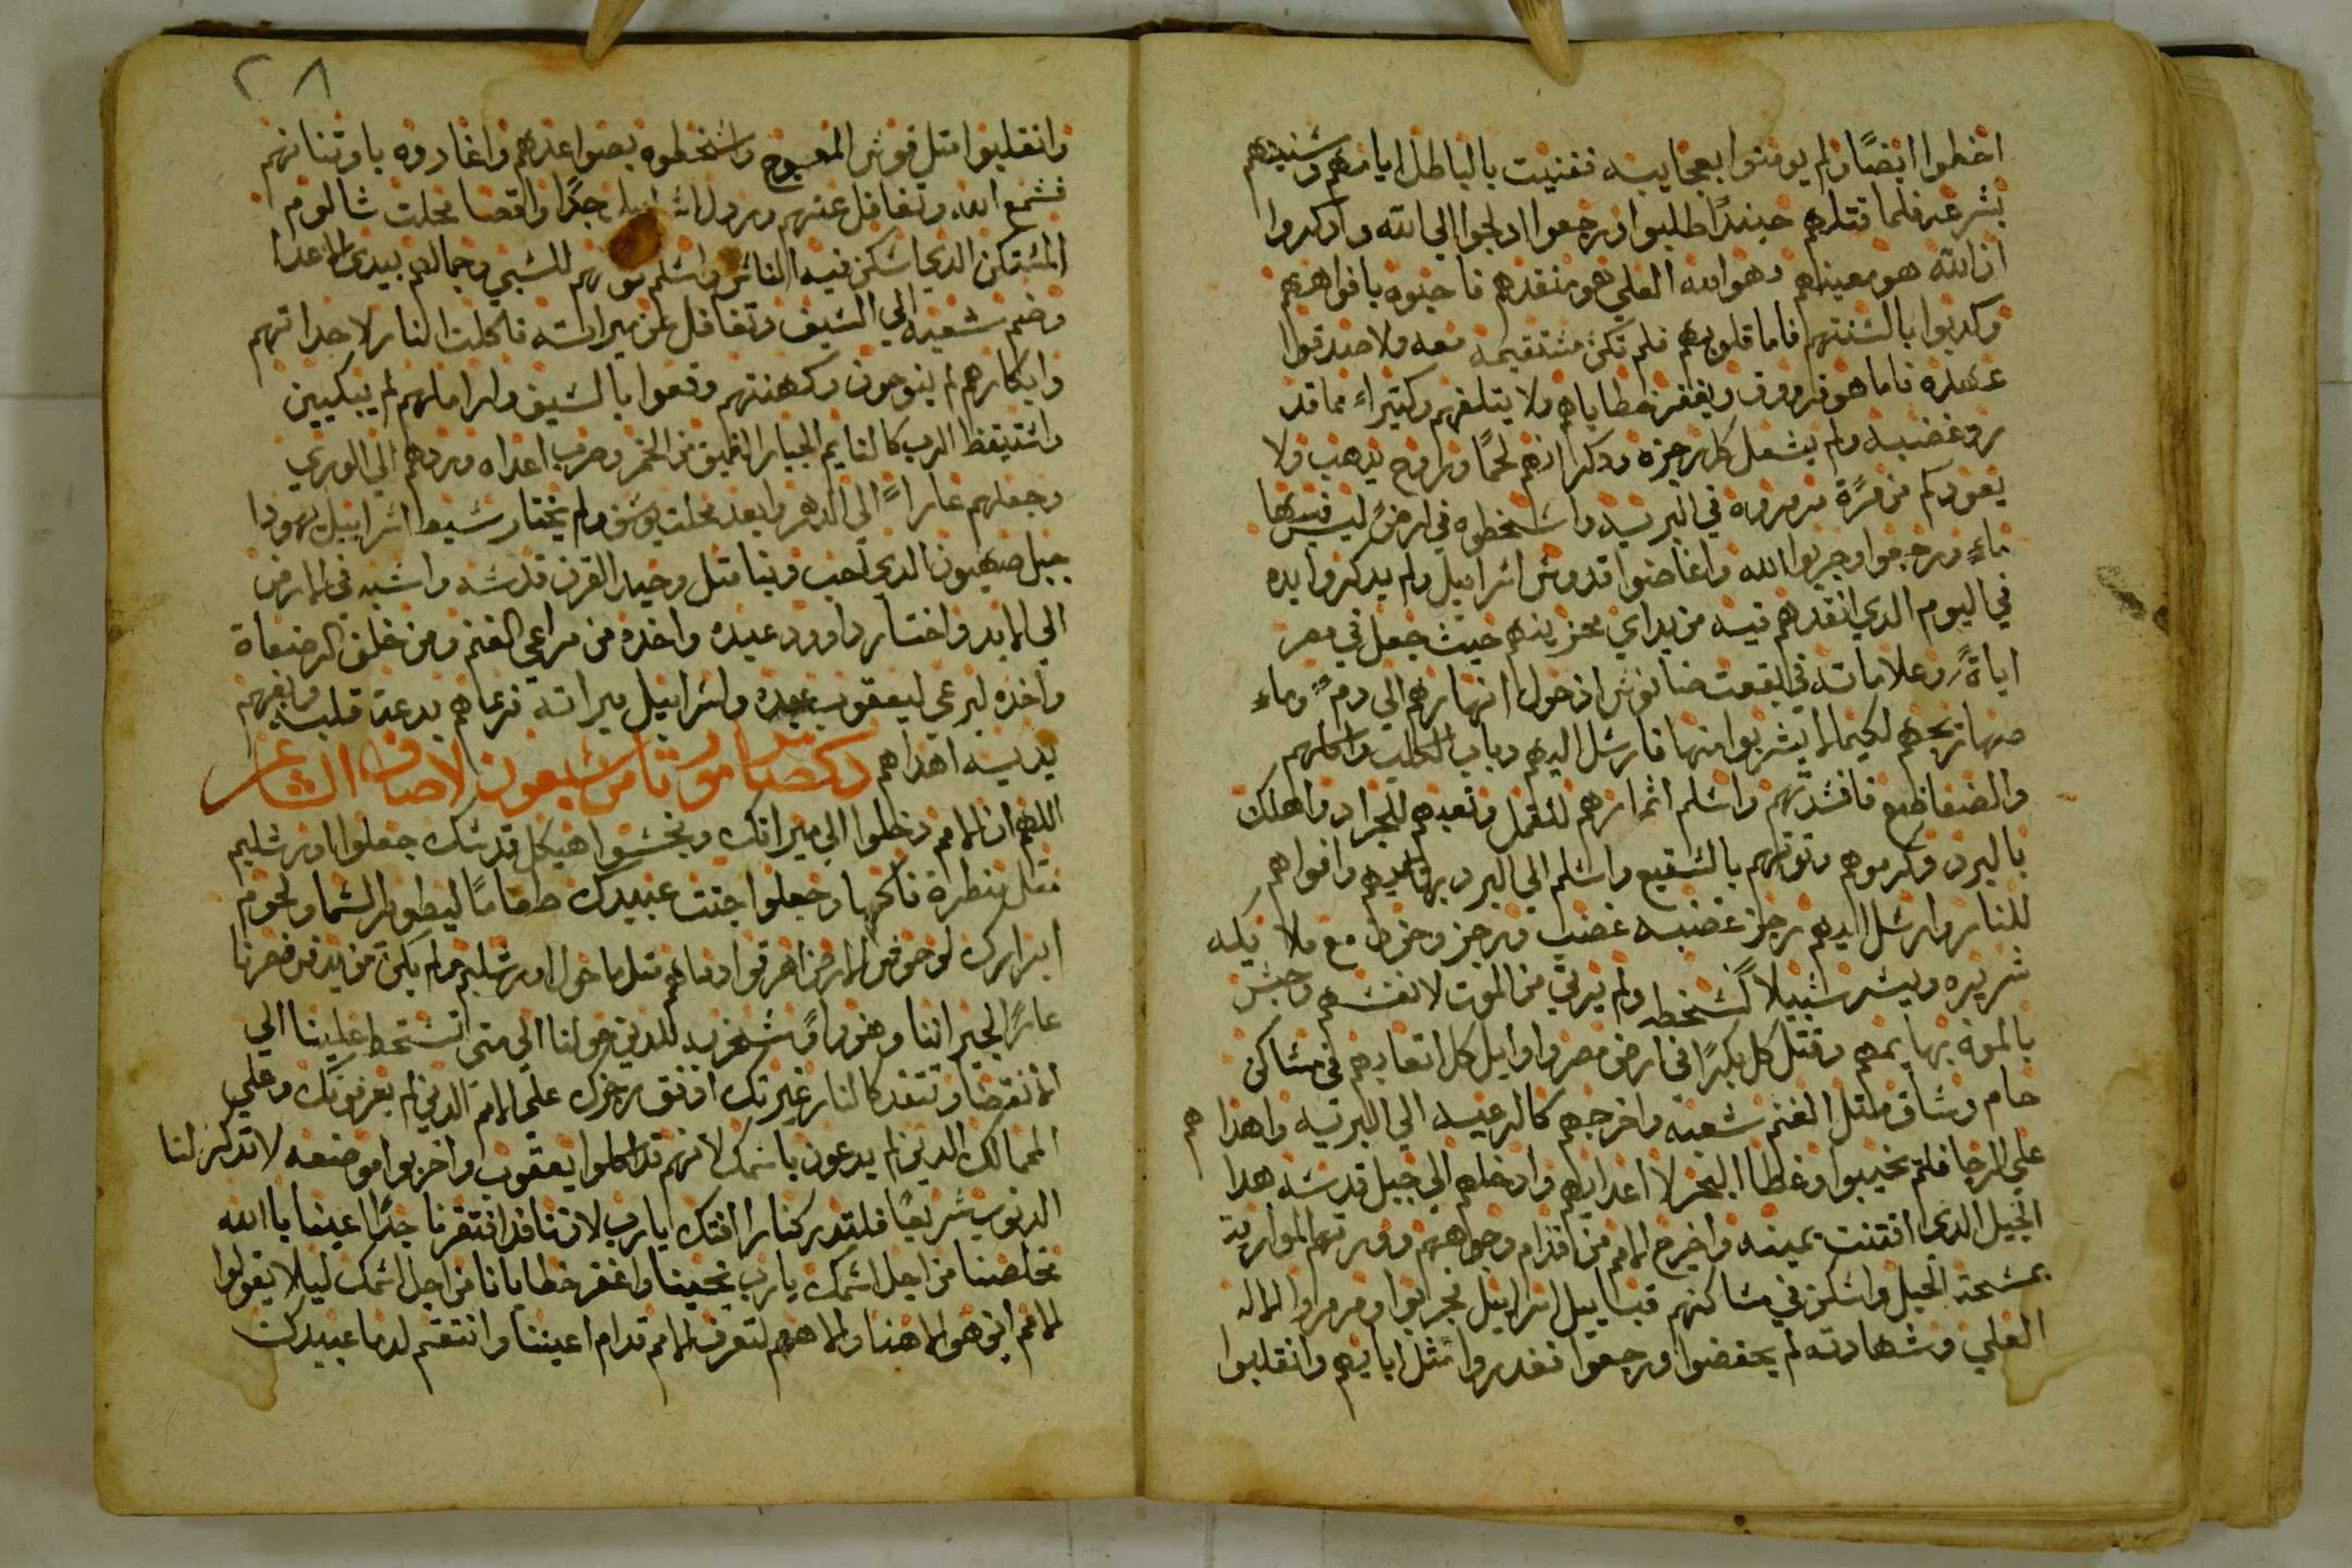 اخطوا ايضًا ولم يومنوا بعجايبه ففنيت بالباطل ايامهم وسنينهم
بشرعه فلما قتلهم حينيدًا طلبوا ورجعوا ادلجوا الي الله وادكروا
ان الله هو معينهم وهو الله العلي هو منقدهم فاحبوه بافواههم
وكدبوا بالسنتهم فاما قلوبهم فلم تكن مستقيمه معه ولا صدقوا
عهده فاما هو فرووف ويغفر خطاياهم ولا يتلفهم وكتيراً مما قد
رد غضبه ولم يشعل كل رجزه ودكر انهم لحمًا وروح يدهب ولا
يعود كم من مرًة مرمروه في البريه واسخطوه في ارض ليس فيها
ماءٍ ورجعوا وجربوا الله واغاضوا قدوس اسراييل ولم يدكروا يده
في اليوم الدي انقدهم فيه من يداي محزينهم حيث جعل في مصر
اياتهً وعلاماته في بقعت صانوش اذ حول انهارهم الي دمً وماء
صهاريجهم لكيما لا يشربوا منها فارسل اليهم دباب الكلب واكلهم
والضفاظيع فافسدتهم واسلم اثمارهم للقمل وتعبهم للجراد واهلك
بالبرد وكرموهم وتوتهم بالسقيع واسلم الي البرد بهايمهم وافواهم
للنار وارسل اليهم رجز غضبه غضب ورجز وحزن مع ملايكه
شريره ويسر سبيلاً لسخطه ولم يرتي من الموت لانفسهم وحبس
بالموة بهايمهم وقتل كل بكرًا في ارض مصر واوايل كل اتعابهم في مساكن
حام وساق متل الغنم شعبه واخرجهم كالرعيه الي البريه واهداهم
علي الرجا فلم يخيبوا وغطا البحر لا اعدايهم وادخلهم الي جبل قدسه هدا
الجبل الدي اقتنت يمينه واخرج الامم من اقدام وجوههم وورتهم المواريت
بمسحة الحبل واسكن في مساكنهم قبايل اسراييل فجربوا ومرمروا الاله
العلي وشهادته لم يحفضوا ورجعوا فغدروا متل ابايهم وانقلبوا
٢٨
وانقلبوا متل قوس المعوج واسخطوه بصواعدهم واغاروه باوتنانهم
فسمع الله وتغافل عنهم وردل اسراييل جدًا واقصا محلت شالوم
المسكن الدي اسكن فيه الناس واسلم قوتهم للسبي وجمالهم بيدي الاعدا
وضم شعبه الي السيف وتغافل عن ميراته فاكلت النار لاحداتهم
وابكارهم لم ينوحون وكهنتهم وقعوا بالسيف واراملهم لم يبكيين
واستيقظ الرب كالنايم الجبار المفيق من الخمر وضرب اعداه وردهم الي الوري
وجعلهم عاراً الي الدهر وابعد محلت يوسف ولم يختار سبط افراييل يهودا
جبل صهيون الدي احب وبنا متل وحيد القرن قدسه واسسه في الارض
الي الابد واختار داوود عبده واخده من مراعي الغنم ومن خلف المرضعاة
واخده ليرعي ليعقوب عبده واسراييل ميراته فرعاهم بدعة قلبه وبفهم
يديه اهداهم دكصا مزمور تامن سبعون لاصاف الشاعر
اللهم ان الامم دخلوا الي ميراتك ونجسوا هيكل قدسك جعلوا اورشليم
متل منطرة فاكهه وجعلوا جتت عبيدك طعامًا ليطور السما ولحوم
ابرارك لوحوش الارض اهرقوا دماهم متل ما حول اورشليم ولم يكن من يدفن فصرنا
عارًا لجيراننا وهزوا وسخريه للدين حولنا الي متي تسخط علينا الي
الانقضا وتتقد كالنار غيرتك افيض رجزك علي الامم الدين لم يعرفونك وعلي
الممالك الدين لم يدعون باسمك لانهم قد اكلوا يعقوب واخربوا موضعه لا تدكر لنا
الدنوب سريعًا فلتدركنا رافتك يا رب لاننا قد افتقرنا جدًا اعينا يا الله
مخلصنا من اجل اسمك يا رب نجينا واغفر خطايانا من اجل اسمك ليلا يقولوا
الامم اين هو الاهنا والاههم لتعرف الامم قدام اعيننا وانتقم لدما عبيدك